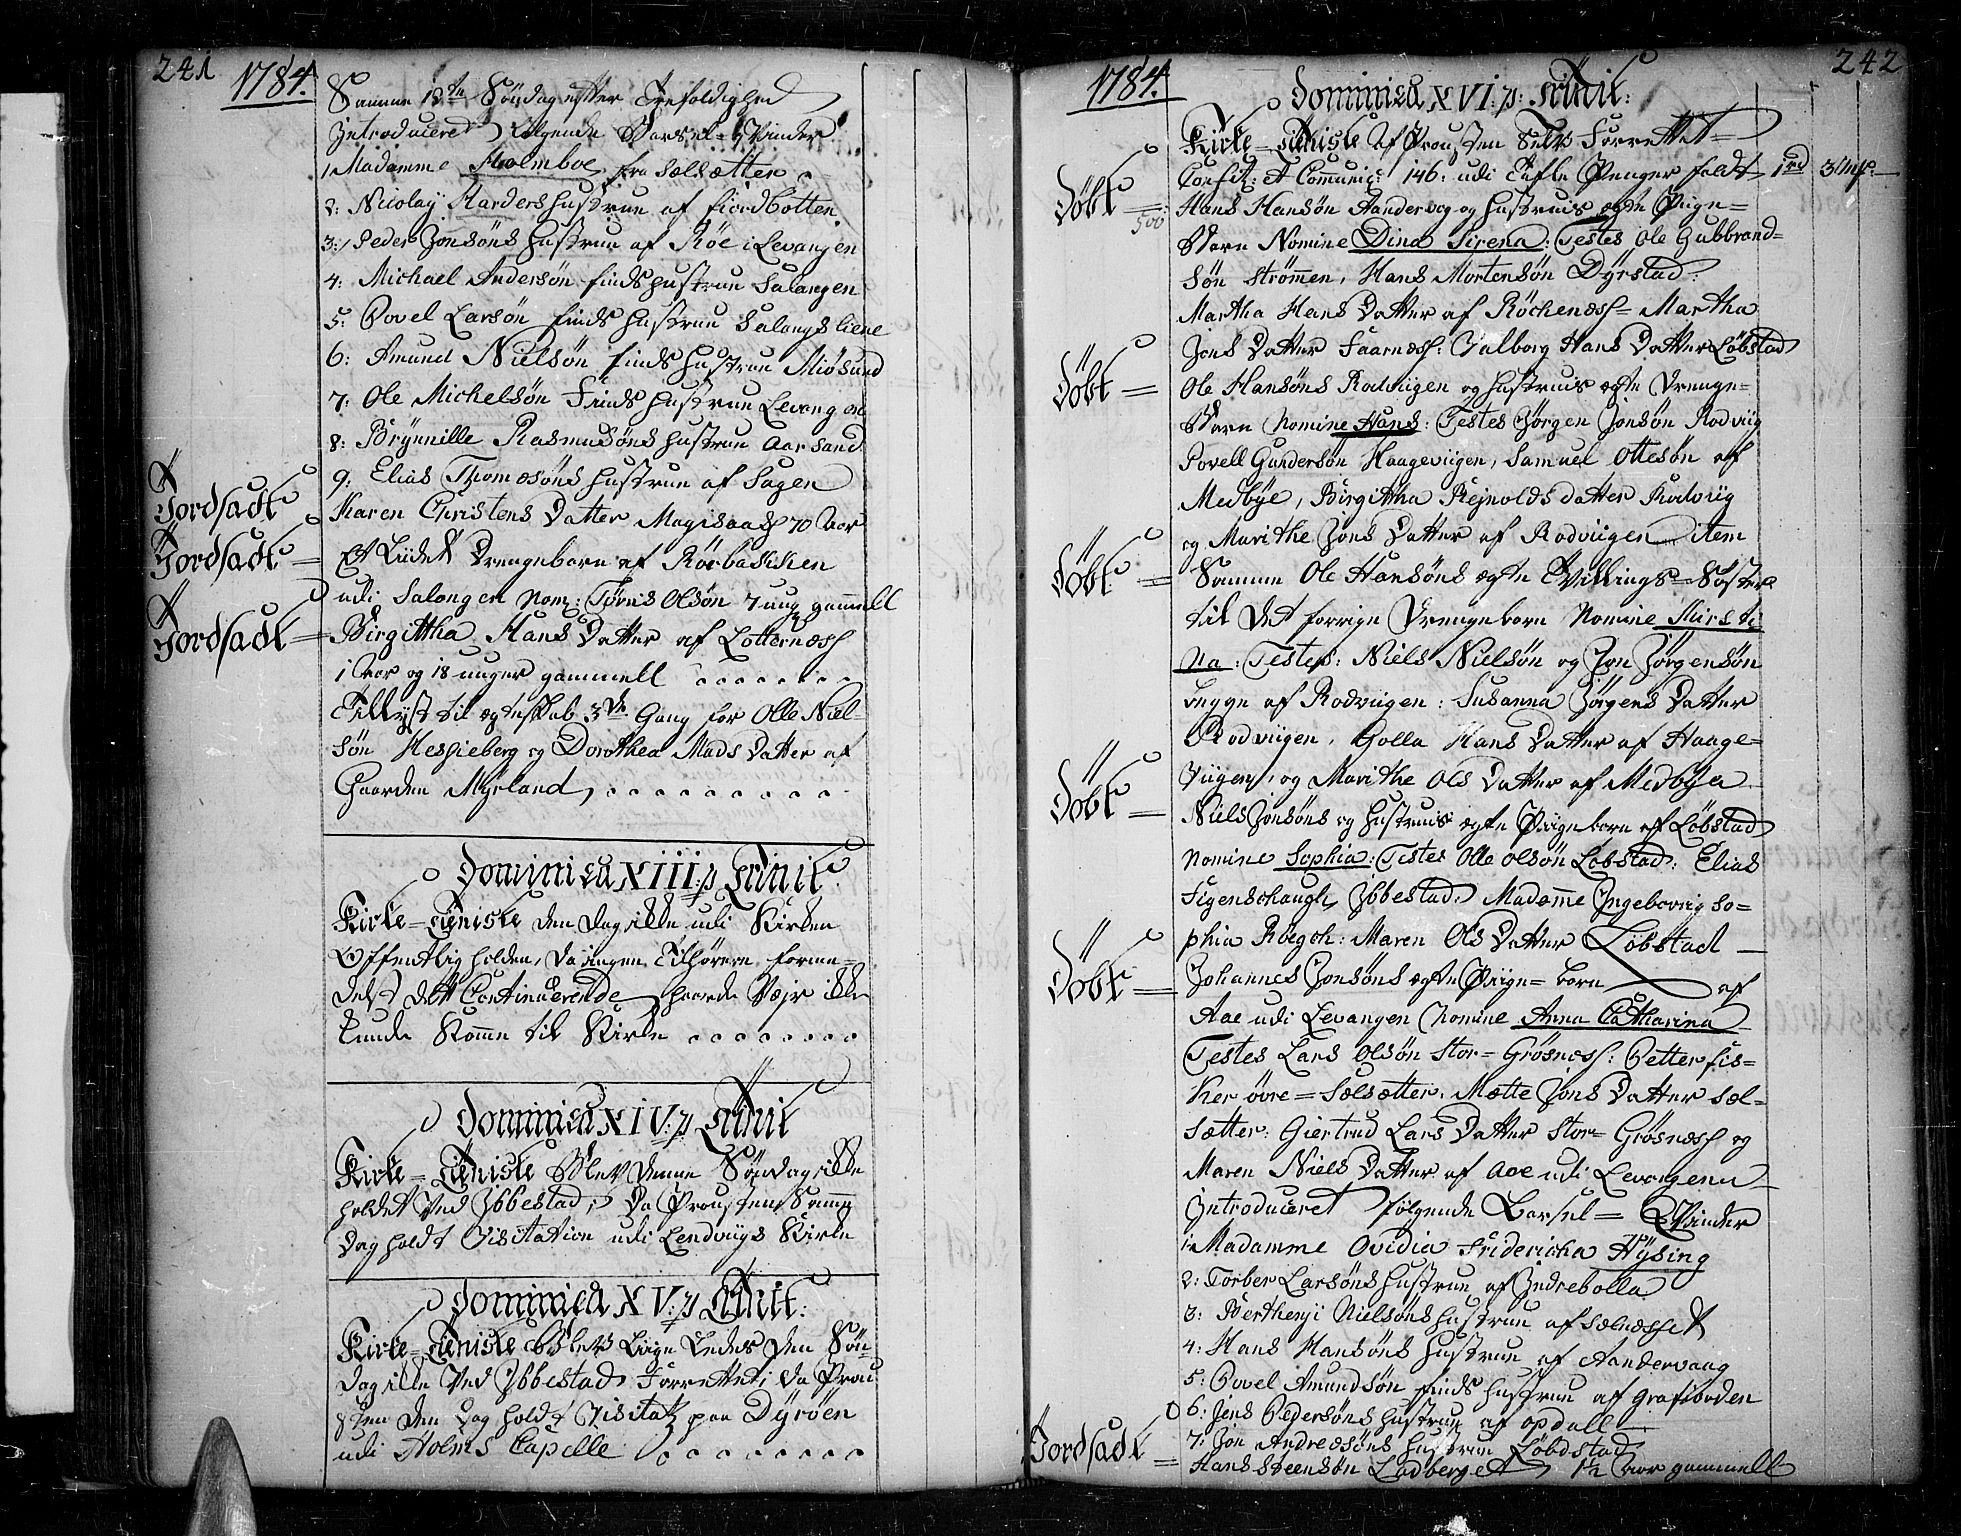 241
1784.
Samme 12te Söndag efter Trefoldighed
Introduceret følgende Barsel-Qvinder
1 Madamme Holmboe fra Sælsætter
2: Nicolay Harders hustrue af fiordbotten
3: Peder Jonsöns hustrue af Röe i Levangen
4: Michael Andersön finds hustrue Salangen
5: Povel Larsön finds hustrue Salangs liene
6: Amund Nielsön finds hustrue Miösund
7: Ole Michelsön Finds hustrue Levangen
8: Brynnille Rasmusöns hustrue Aarsand
9: Elias Thomesöns hustrue af Sagen
Jordfædt Karen Christens Datter 70 Aar
Jordfædt = Et Lidet Drengebarn af Rörbakken
udi Salangen Nom: Törris Olsön 7 uug gammell
Jordfædt = Birgittha Hans Datter af Lotternæss
1 Aar og 18 uuger gammell
Tillyst til Egteskab 3de Gang for Olle Niel-
sön Hessieberg og Dorothea Mads Datter af
Gaarden Myrland
Dominica XIII: p Trinit:
Kirke-Tieniste den Dag ikke udi Kirken
Offentlig holden, da ingen Tilhörere forme-
delst dett Continuerende haarde Vejr ikke
kunde komme til Kirke
Dominica XIV: p Trinit
Kirke-Tieniste blev denne Söndag ikke
holdet Ved Ibbestad; da Prousten Samme
dag holdt Visitation udi Lendviigs Kirke
Dominica XV: p Trinit:
Kirke-Tieniste blev Liige Ledes den Sön-
dag ikke Ved Ibbestad Forrettet; da Prou
sten den dag holdt Visitatz paa Dyröen
udi Holms Capelle
242
1784.
Dominica XVI: p: Trinit:
Kirke-Tieniste af Prousten Selv Forrettet
Confit: et Communic: 146: udi Tavle Penger faldt 1rd 3
Döbt = Hans Hansön Aandervog og hustrues egte Piige-
500
Barn Nomine Dina Sirena: Testes Ole Gubbrand-
sön Strömmen, Hans Mortensön Dyrstad:
Martha Hans Datter af Röckenæss- Martha
Jons Datter Faarnæss: Valborg Hans Datter Löbstad
Döbt = Ole Hansöns Rodviigen og hustrues egte Drenge-
Barn Nomine Hans: Testes Jörgen Jonsön Rodviig
Povell Gundersön Haageviigen, Samuel Ottesön af
Medbye, Birgitha Rejnolds datter Rodviig
og Marithe Jons Datter af Rodviigen item
Döbt = Samme Ole Hansöns egte Tvillings-Söster
til det forrige Drengebarn Nomine Kirsti-
na: Testes: Niels Nielsön og Jon Jörgensön
begge af Rodviigen: Susanna Jörgens Datter
Rodviigen, Golla Hans Datter af Haage-
viigen, og Marithe Ols Datter af Medbye
Döbt = Niels Jonsöns og hustrues egte Piigebarn af Löbstad
Nomine Sophia: Testes Olle Olsön Lobstad: Elias
Figenschaugh, Ibbestad: Madame Ingeborrig So-
phia Röegh: Maren Ols Datter Löbstad
Döbt = Johannes Jonsöns egte Piige-barn af
Aae udi Levangen Nomine Anna Catharina
Testes Lars Olsön Stor-Grösnæss: Petter fis-
ker övre-Sælsætter. Mætte Jons Datter Sæl-
sætter: Giertrud Lars Datter Stor-Grösnæss og
Maren Niels Datter af Aae udi Levangenn
Introduceret følgende Barsel-Qvinder
1: Madamme Ovidia Friderica Hysing
2: Torber Larsöns hustrue af Indrebolla
3: Nielsöns hustrue af Sælnæsset
4: Hans Hansöns hustrue af Aandervaag
5: Povel Amundsön finds hustrue af Grafiorden
6: Jens Pedersöns hustrue af Opdall
7: Jon Andreæsöns hustrue Löbdstad
Jordfædt = Hans Steensön Ladberget 1½ Aar gammell